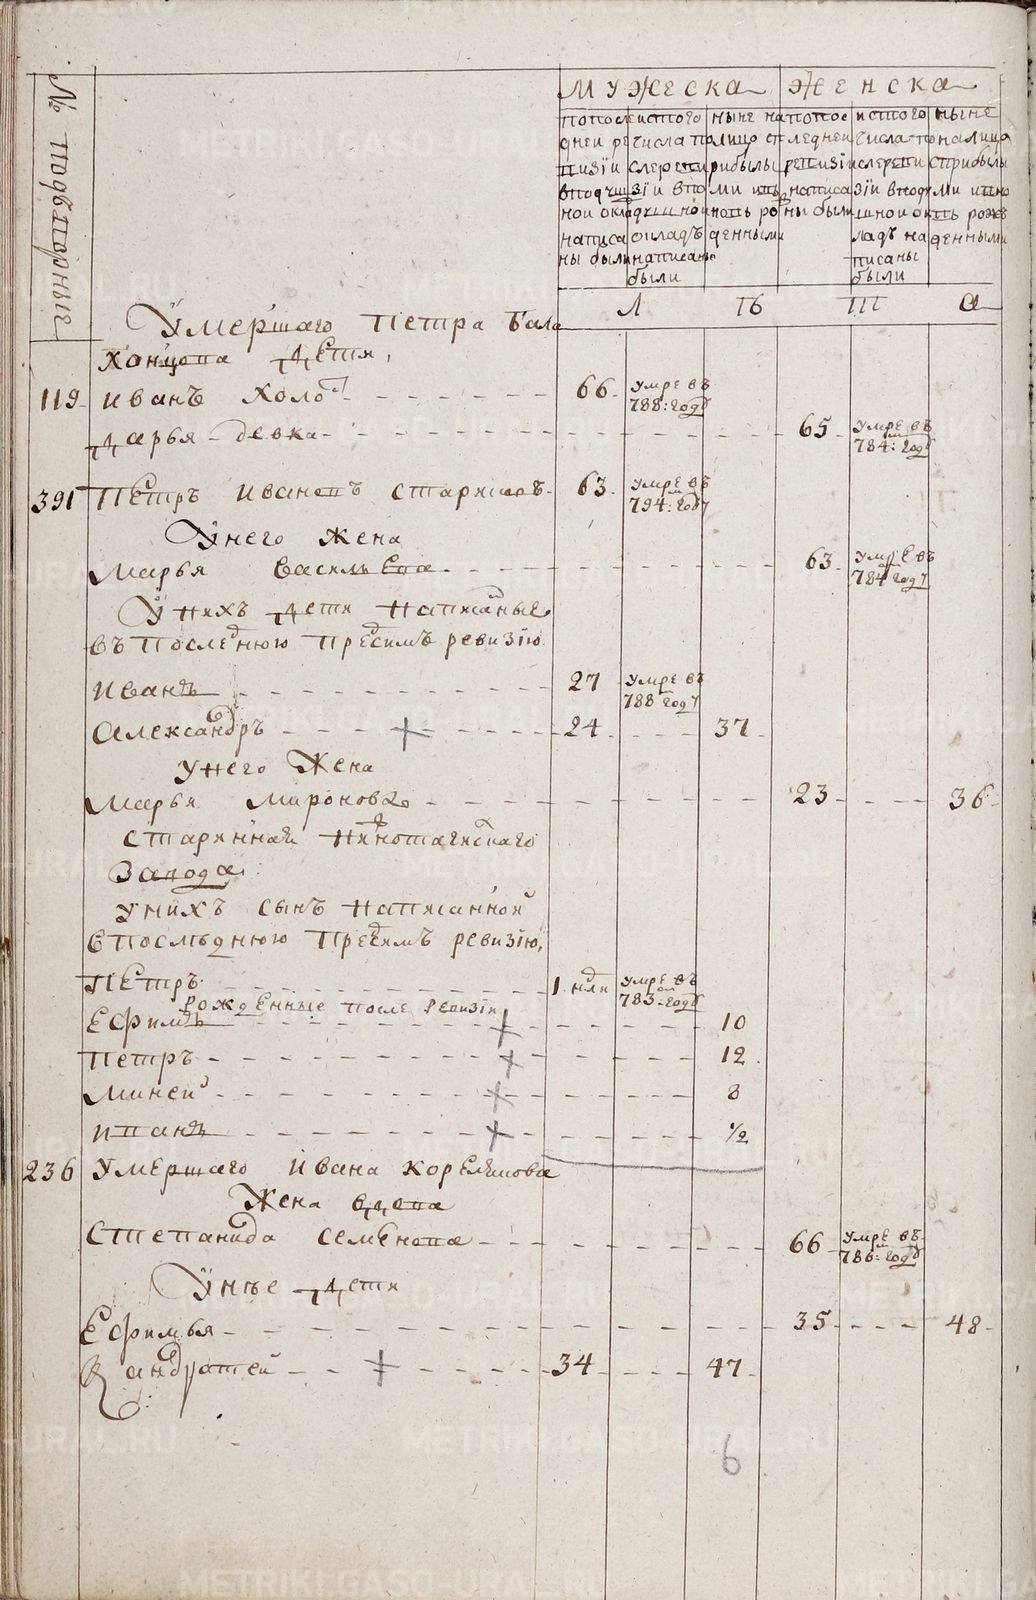 № подворные
мужеска женска
по после дней ревизии в подушной оклад написаны были
из того числа после ревизiи в подушной окладъ написан были
ныне на лицо с прибылыми и вновь рожденными
по последней ревизiи написаны были
из того числа после ревизiи в подушной окладъ написаны были
ныне на лицо с прибылыми и вновь рожденными
Умершаго Петра Бала
ханцова дети,
119 иванъ холо 66 умре въ 788: году
дарья девка 65 умре въ 784: году
391 Петръ ивановъ старичевъ 63 умре въ 794: году
У него жена
Марья васильева 63 умре въ 784 году
У нихъ дети написаные
въ последнюю пред симъ ревизiю
иванъ 27 умре въ 788 году
Александръ 24 37
у него жена
Марья миронова 23 36
старинная
завода
у нихъ сынъ написанной
в последнюю пред симъ ревизiю,
Петръ 1 нди умре въ 783 году
рожденные после ревизiи
Ефимъ 10
Петръ 12
Миней 8
иванъ 1/2
236 умершаго ивана корелинова
жена вдова
степанида семенова 66 умре въ 786: году
У нее дети
Ефимья 35 48
Кандратей 34 47
6
METRIKI.GASO-URAL.RU